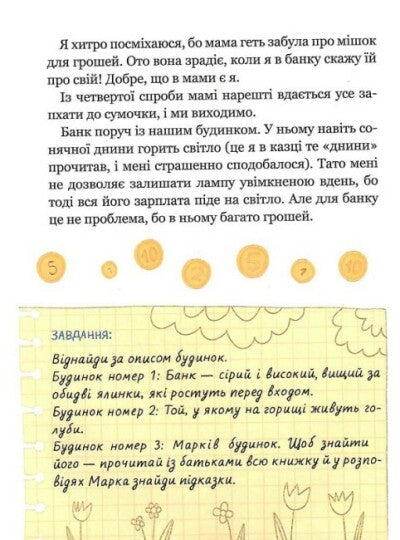 Я хитро посміхаюся, бо мама геть забула про мішок
для грошей. Ото вона зрадіє, коли я в банку скажу їй
про свій! Добре, що в мами є я.
Із четвертої спроби мамі нарешті вдається усе за-
пхати до сумочки, і ми виходимо.
Банк поруч із нашим будинком. У ньому навіть со-
нячної днини горить світло (це я в казці те «днини»
прочитав, і мені страшенно сподобалося). Тато мені
не дозволяє залишати лампу увімкненою вдень, бо
тоді вся його зарплата піде на світло. Але для банку
це не проблема, бо в ньому багато грошей.
5 1 10 2 5 1 10
ЗАВДАННЯ:
Віднайди за описом будинок.
Будинок номер 1: Банк — сірий і високий, вищий за
обидві ялинки, які ростуть перед входом.
Будинок номер 2: Той, у якому на горищі живуть го-
луби.
Будинок номер 3: Марків будинок. Щоб знайти
його — прочитай із батьками всю книжку й у розпо-
відях Марка знайди підказки.